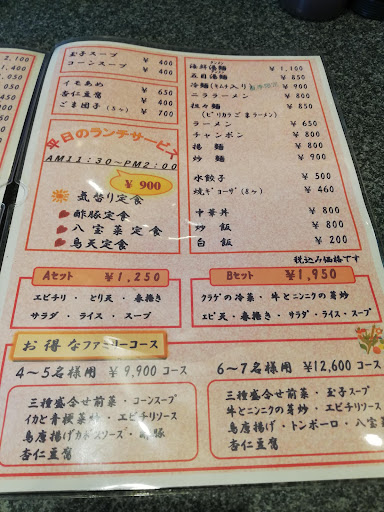 2,100
,050
,050
玉子スープ ¥ 400
コーンスープ ¥ 400
イモあめ ¥ 650
杏仁豆腐 ¥ 400
ごま団子(3ヶ) ¥ 700
平日のランチサービス
AM11:30~PM2:00
¥ 900
気替り定食
酢豚定食
八宝菜定食
鳥天定食
海鮮湯麺 ¥ 1,100
五目湯麺 ¥ 850
冷麺(キムチ入り) ¥ 900
ニララーメン ¥ 800
担々麺 ¥ 800
(ピリカラごまラーメン)
ラーメン ¥ 650
チャンポン ¥ 800
揚麺 ¥ 800
炒麺 ¥ 900
水餃子 ¥ 500
焼ギョーザ(8ヶ) ¥ 460
中華丼 ¥ 800
炒飯 ¥ 800
白飯 ¥ 200
税込み価格です
Aセット ¥1,250
エビチリ ・ とり天 ・ 春捲き
サラダ ・ ライス ・ スープ
Bセット ¥1,950
クラゲの冷菜・牛とニンニクの芽炒
エビ天・春捲き・サラダ・ライス・スープ
お得なファミリーコース
4~5名様用 ¥9,900 コース
三種盛合せ前菜・コーンスープ
イカと青梗菜炒・エビチリソース
鳥唐揚げカボスソース・酢豚
杏仁豆腐
6~7名様用 ¥12,600 コース
三種盛合せ前菜・玉子スープ
牛とニンニクの芽炒・エビチリソース
鳥唐揚げ・トンポーロ・八宝菜
杏仁豆腐